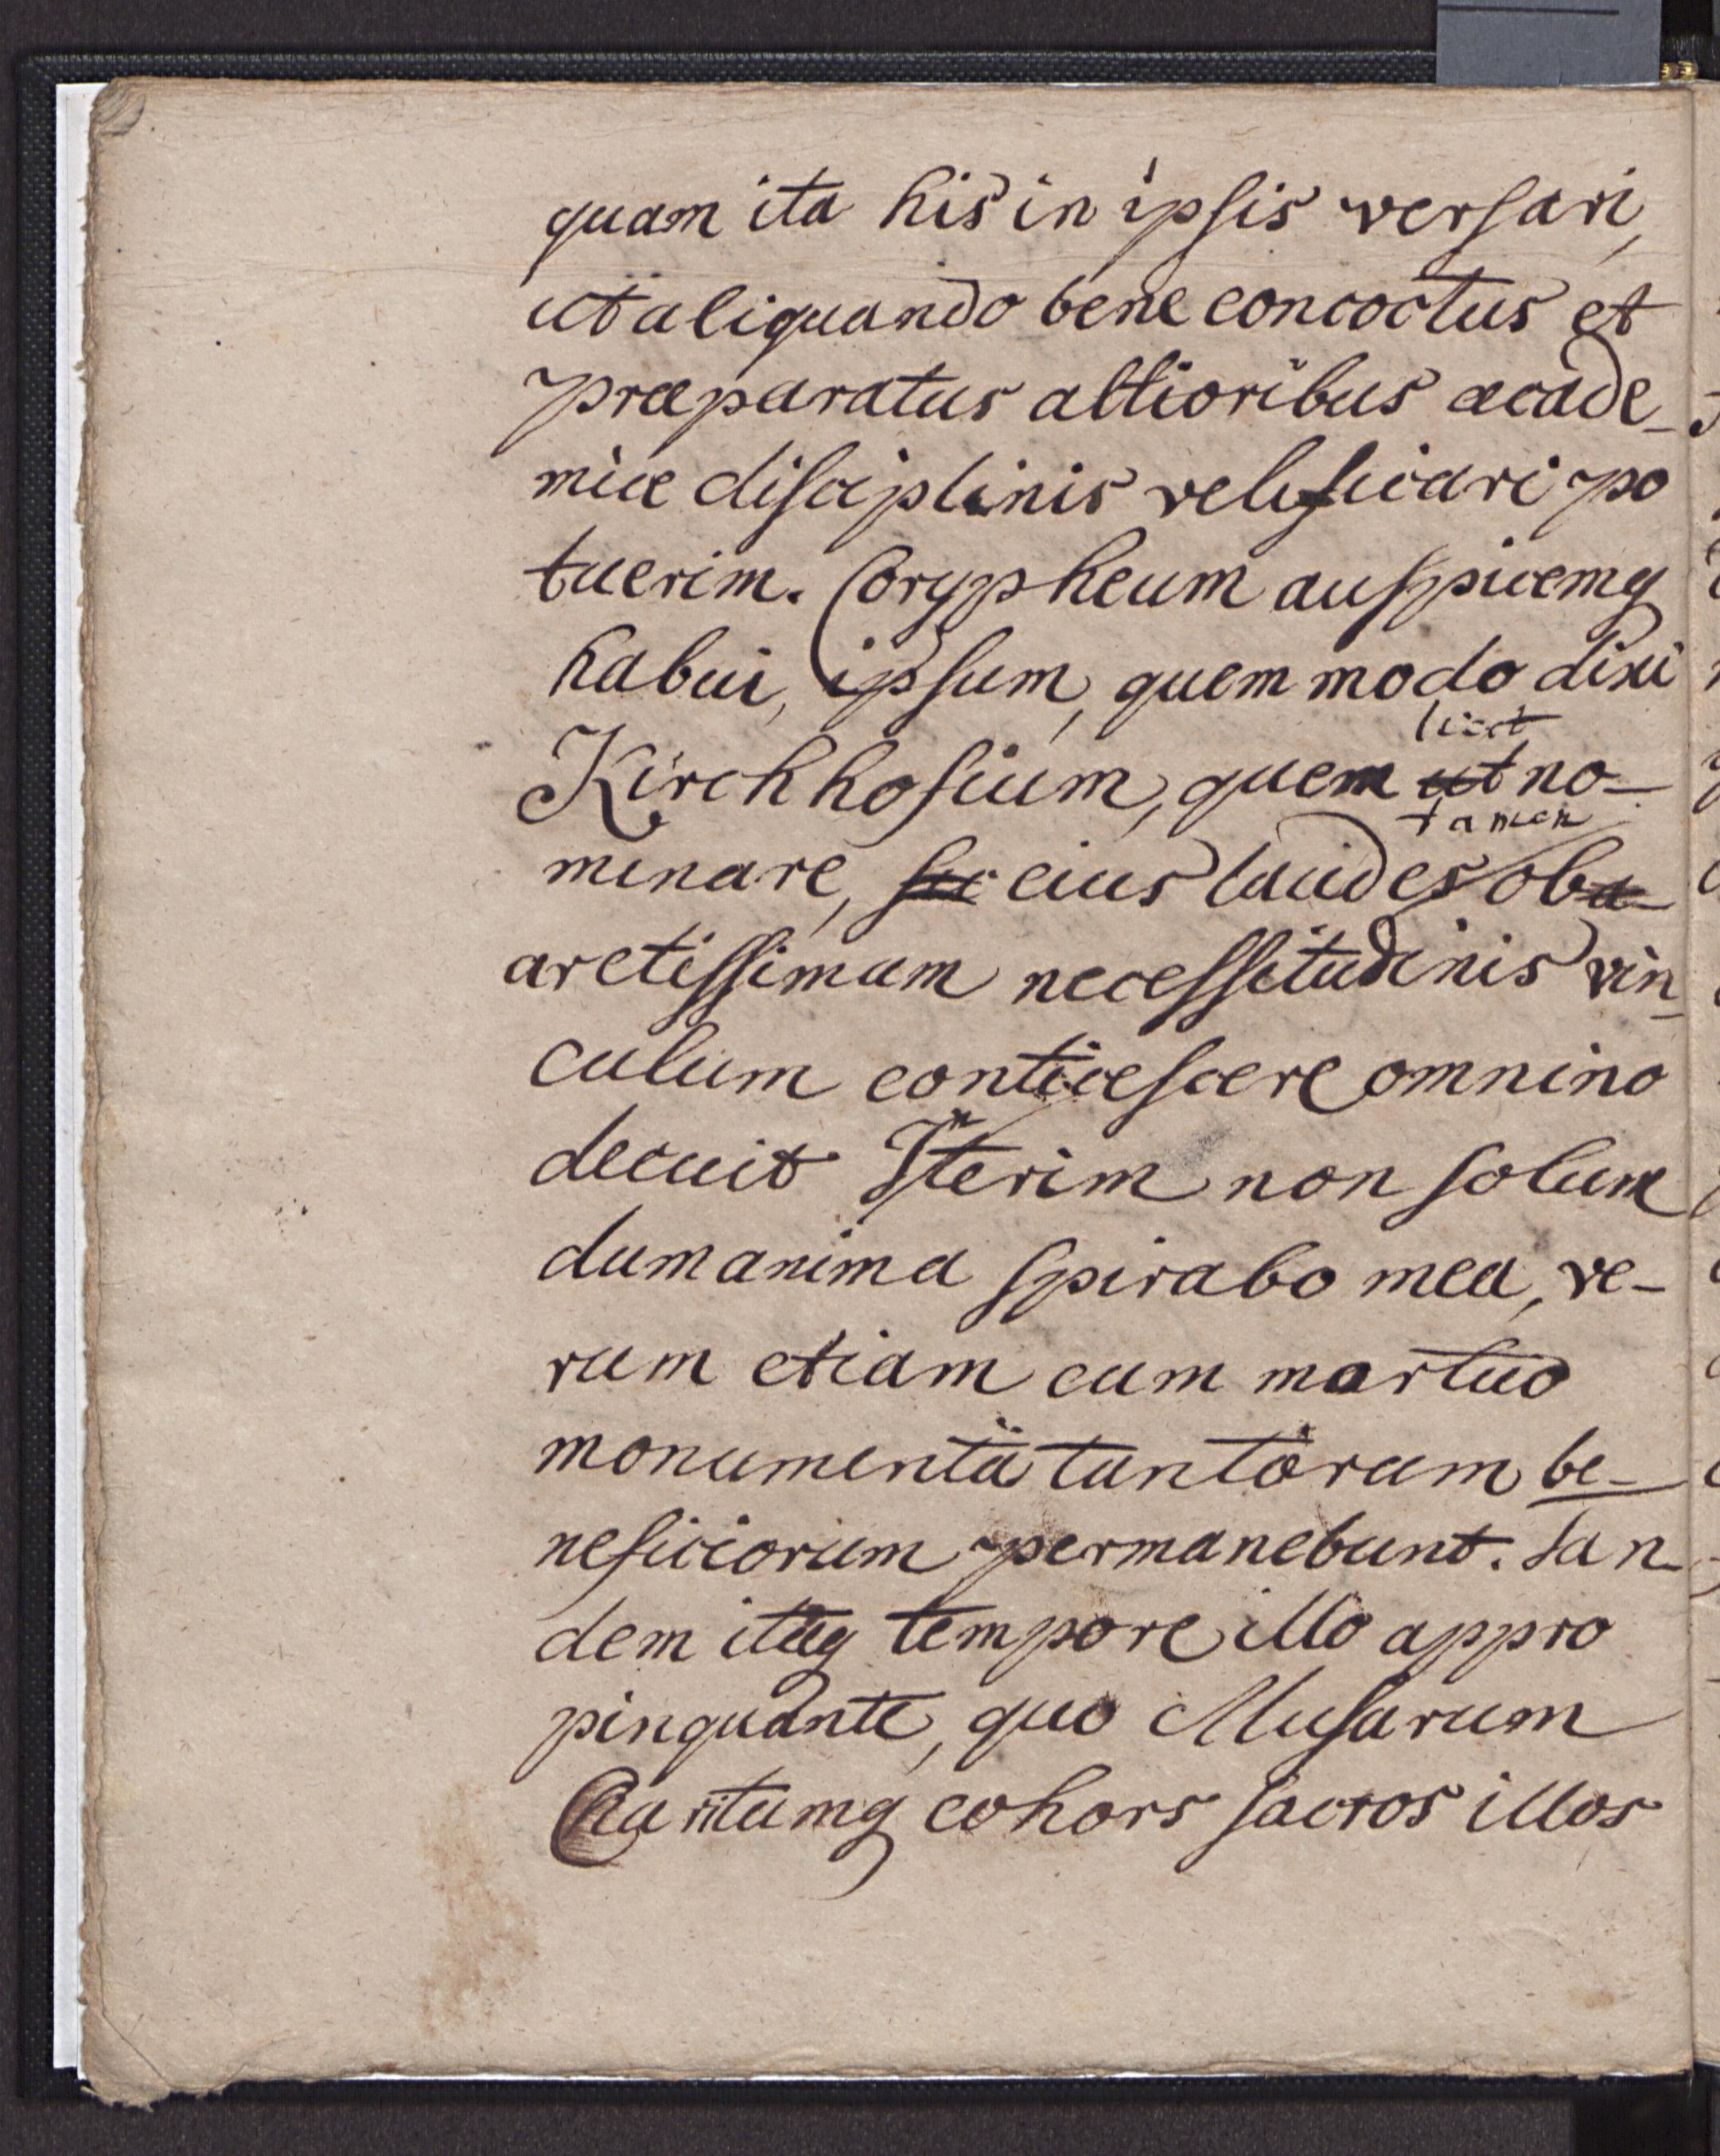 quam ita his in ipsis versari,
ut aliquando bene concoctus et
præparatus altioribus acade-
miæ disciplinis velificari po
tuerim. Corypheum auspicemq
habui, ipsum, quem modo dixi
licet
Kirchhofium, quem ut no-
tamen
minare, sic eius laudes ob a-
arctissimum necessitudinis vin-
culum conticescere omnino
decuit Interim non solum
dum anima spirabo mea, ve-
rum etiam cum mortuo
monumenta tantorum be-
neficiorum permanebunt. Tan
dem itaq tempore illo appro
pinquante, quo Musarum
Charitumq cohors sacros illos